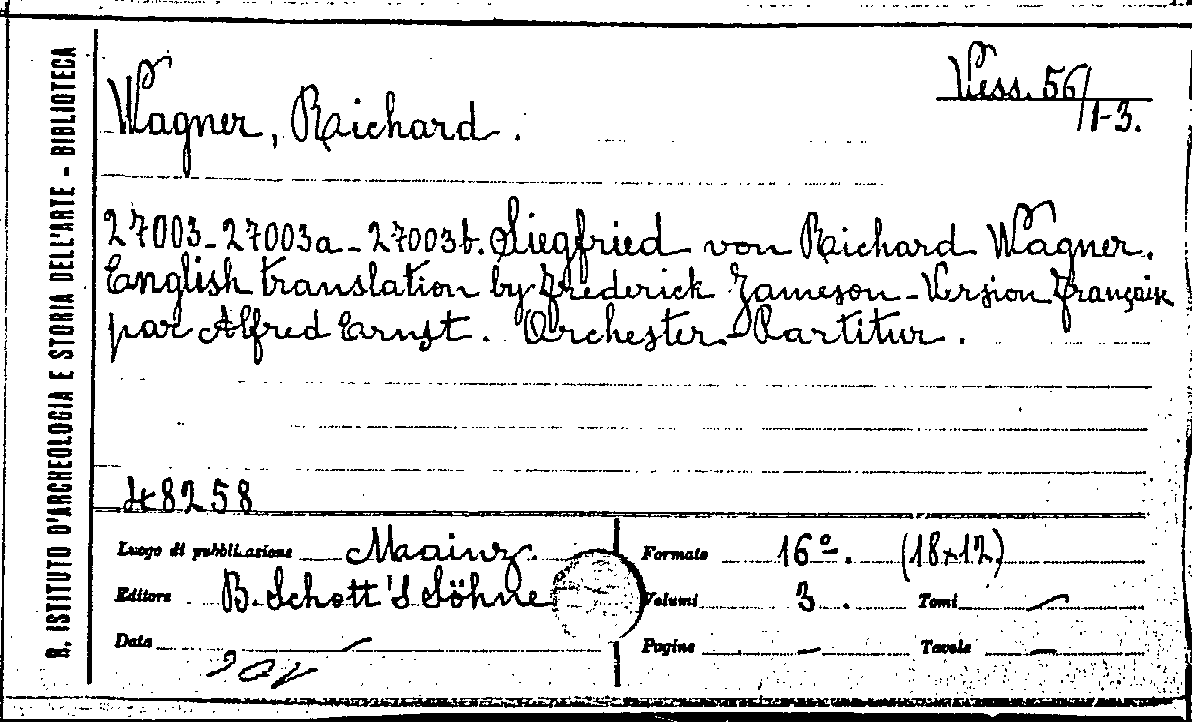 R. ISTITUTO D'ARCHEOLOGIA E STORIA DELL'ARTE - BIBLIOTECA
Vess. 56/1-3.
Wagner, Richard.
27003-27003a-27003b. Siegfried von Richard Wagner.
English translation by Frederick Jameson - Version française
par Alfred Ernst. Orchester-Partitur.
48258
Luogo di pubblicazione Mainz. Formato 16º. (18x12)
Editore B. Schott's Söhne Volumi 3. Tomi —
Data — Pagine — Tavole —